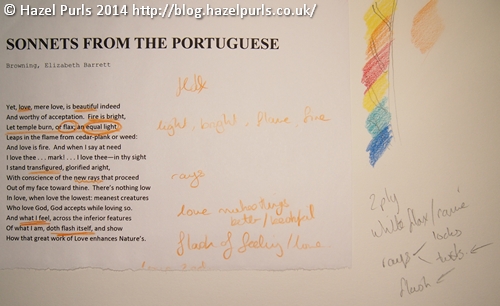 © Hazel Purls 2014 http://blog.hazelpurls.co.uk/
SONNETS FROM THE PORTUGUESE
Browning, Elizabeth Barrett
Yet, love, mere love, is beautiful indeed
And worthy of acceptation. Fire is bright,
Let temple burn, or flax; an equal light
Leaps in the flame from cedar-plank or weed:
And love is fire. And when I say at need
I love thee . . . mark! . . . I love thee—in thy sight
I stand transfigured, glorified aright,
With conscience of the new rays that proceed
Out of my face toward thine. There's nothing low
In love, when love the lowest: meanest creatures
Who love God, God accepts while loving so.
And what I feel, across the inferior features
Of what I am, doth flash itself, and show
How that great work of Love enhances Nature's.
light, bright, flame, fire
rays
love makes things
better/beautiful
flash of feeling/love
2ply
white flax/ramie
rays locks
flash